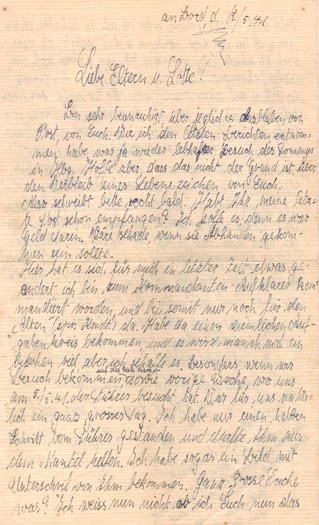 an Bord d. 12/5.41
Liebe Eltern u. Lotte!
Bin sehr beunruhigt über jegliches Ausbleiben von
Post, von Euch. Wie ich den letzten Berichten entnom-
men habe war ja wieder lebhafter Besuch des Tommys
in Hbg. Hoffe aber dass das nicht der Grund ist über
den Verbleib eines Lebenszeichen von Euch.
Also schreibt bitte recht bald. Habt Ihr meine letz-
te Post schon empfangen? Ich hoffe es, denn es war
Geld darin. Wäre schade, wenn sie Abhanden gekom-
men sein sollte.
Hier hat es sich für mich in letzter Zeit etwas ge-
ändert. Ich bin zum Kommandanten-aufklarer kom-
mandiert worden, und bin somit nur noch für den
Alten da. Habe da einen ziemlichen Auf-
gabenkreis bekommen und es wird manchmal ein
bisschen viel aber ich schaffe es. Besonders, wenn wir
Besuch bekommen, sowie vorige Woche, wo uns
am 5/5.41 der Führer besucht hat. War für uns natür-
lich ein ganz grosser Tag. Ich habe nur einen halben
Schritt vom Führer gestanden und durfte, Ihm aus
dem Mantel helfen. Ich habe sogar ein Bild mit
Unterschrift von Ihm bekommen. Ganz grosse Sache
was? Ich weiss nun nicht ob ich Euch nun das